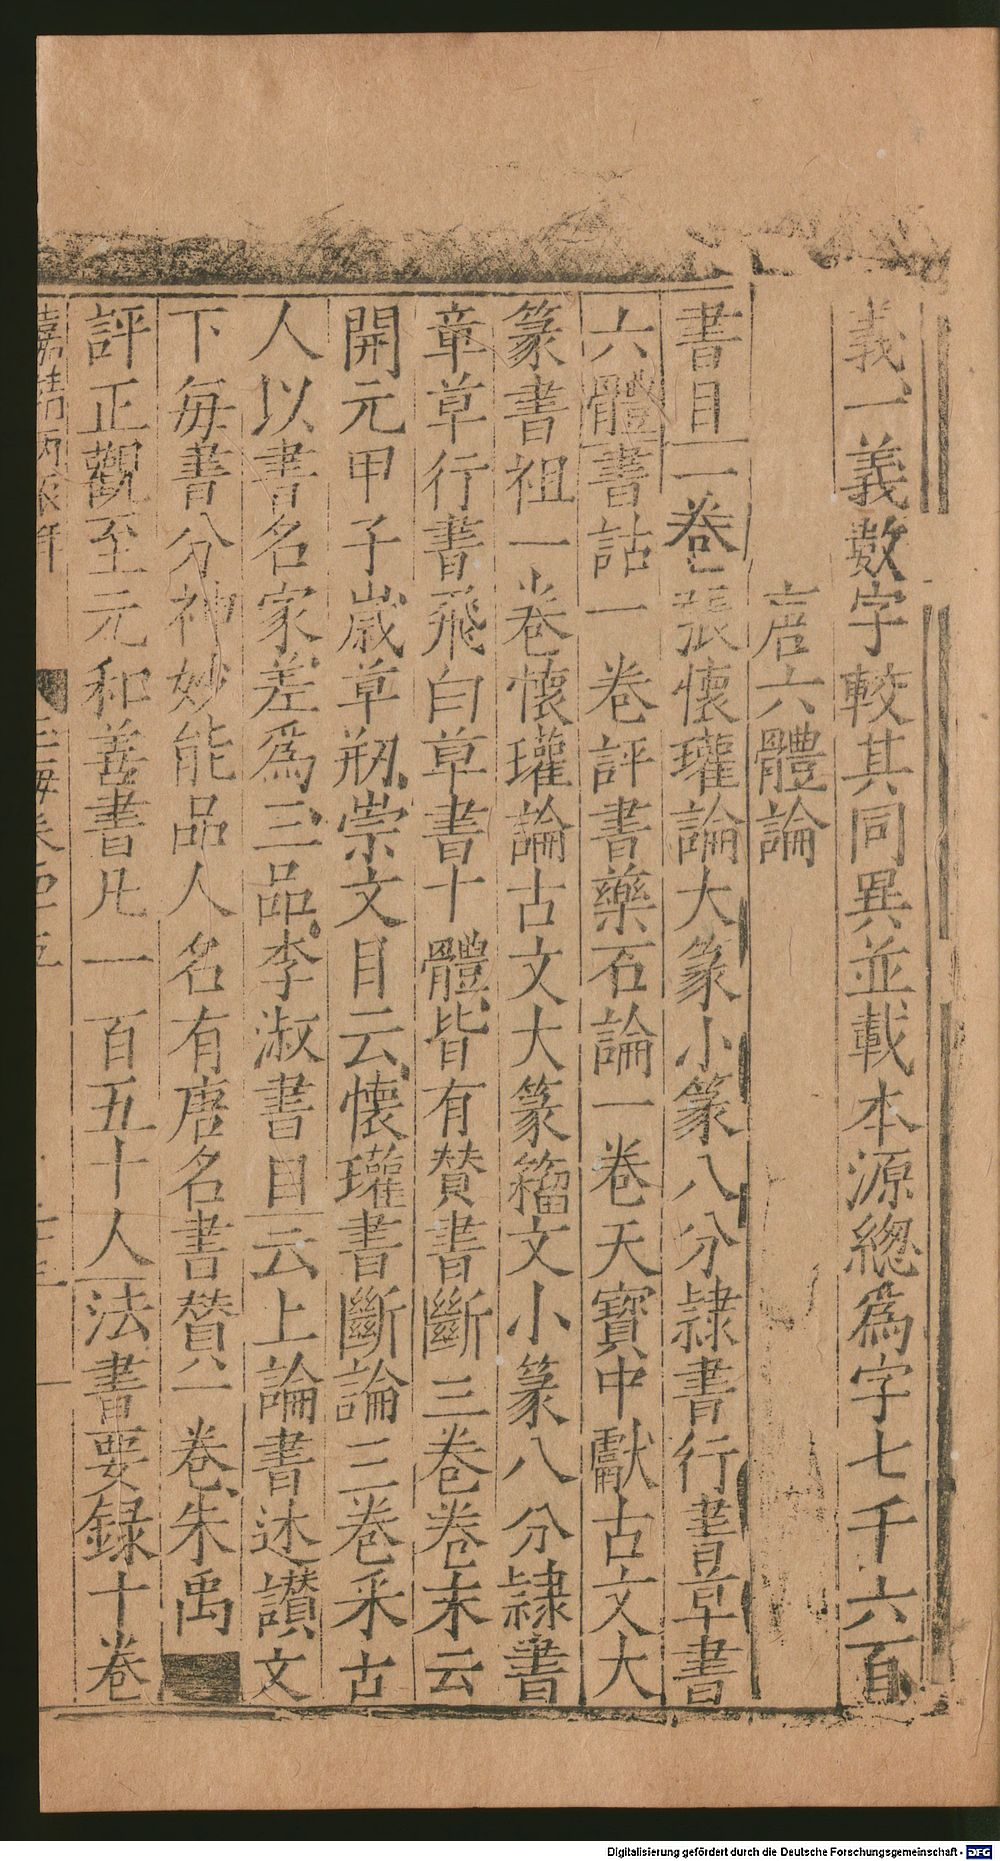 義一義数字較其同異並載本源緫爲字七千六百
唐六體論
書目一卷張懷瓘論大篆小篆八分隷書行書草書
六體書詁一卷評書藥石論一卷天寳中獻古文大
篆書祖一卷懷瓘論古文大篆籀文小篆八分隷書
章草行書飛白草書十體皆有賛書斷三卷卷末云
開元甲子嵗草剏崇文目云懷瓘書斷論三卷采古
人以書名家差爲三品李淑書目云上論書述讃文
下毎書分神妙能品人名有唐名書賛一卷朱禹
評正觀至元和善書凡一百五十人法書要録十卷
嘉靖丙辰年 玉海卷四十五 十三
Digitalisierung gefördert durch die Deutsche Forschungsgemeinschaft - DFG